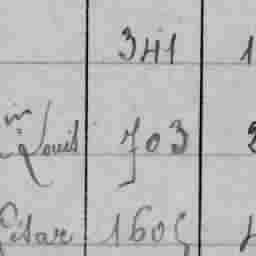 341 1
Louis 703 2
César 1605